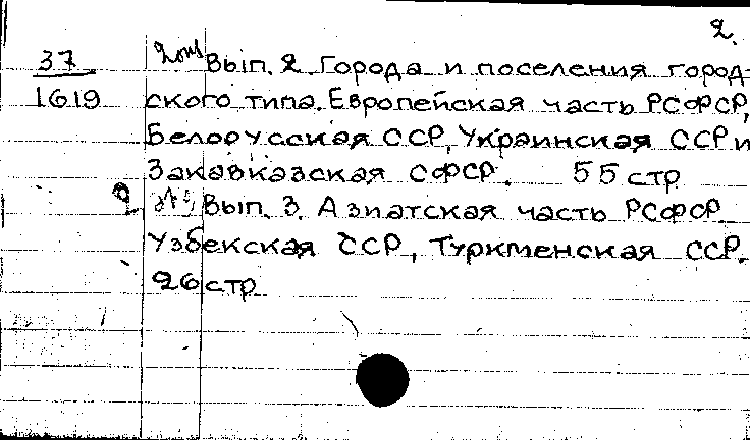 2.
37
1619
Вып. 2. Города и поселения город-
ского типа. Европейская часть РСФСР,
Белорусская ССР, Украинская ССР и
Закавказская СФСР. 55 стр
Вып. 3. Азиатская часть РСФСР
Узбекская ССР, Туркменская ССР.
26 стр